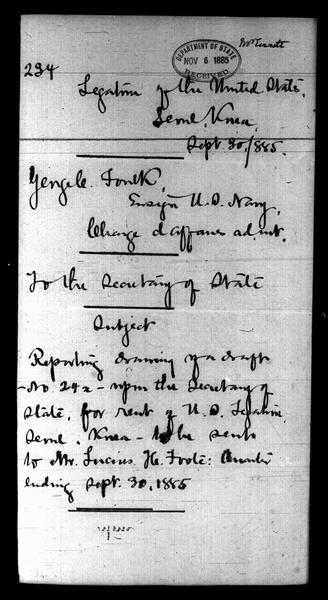 DEPARTMENT OF STATE
NOV 6 1885
RECEIVED
234
Legation of the United States,
Seoul, Korea,
Sept. 30/1885.
George C. Foulk,
Ensign U.S. Navy,
Chargé d'affaires ad int.
To the Secretary of State
Subject
Reporting drawing of a draft
- No. 242 - upon the Secretary of
State, for rent of U.S. Legation,
Seoul, Korea - to be sent
to Mr. Lucius H. Foote: Quarter
ending Sept. 30, 1885